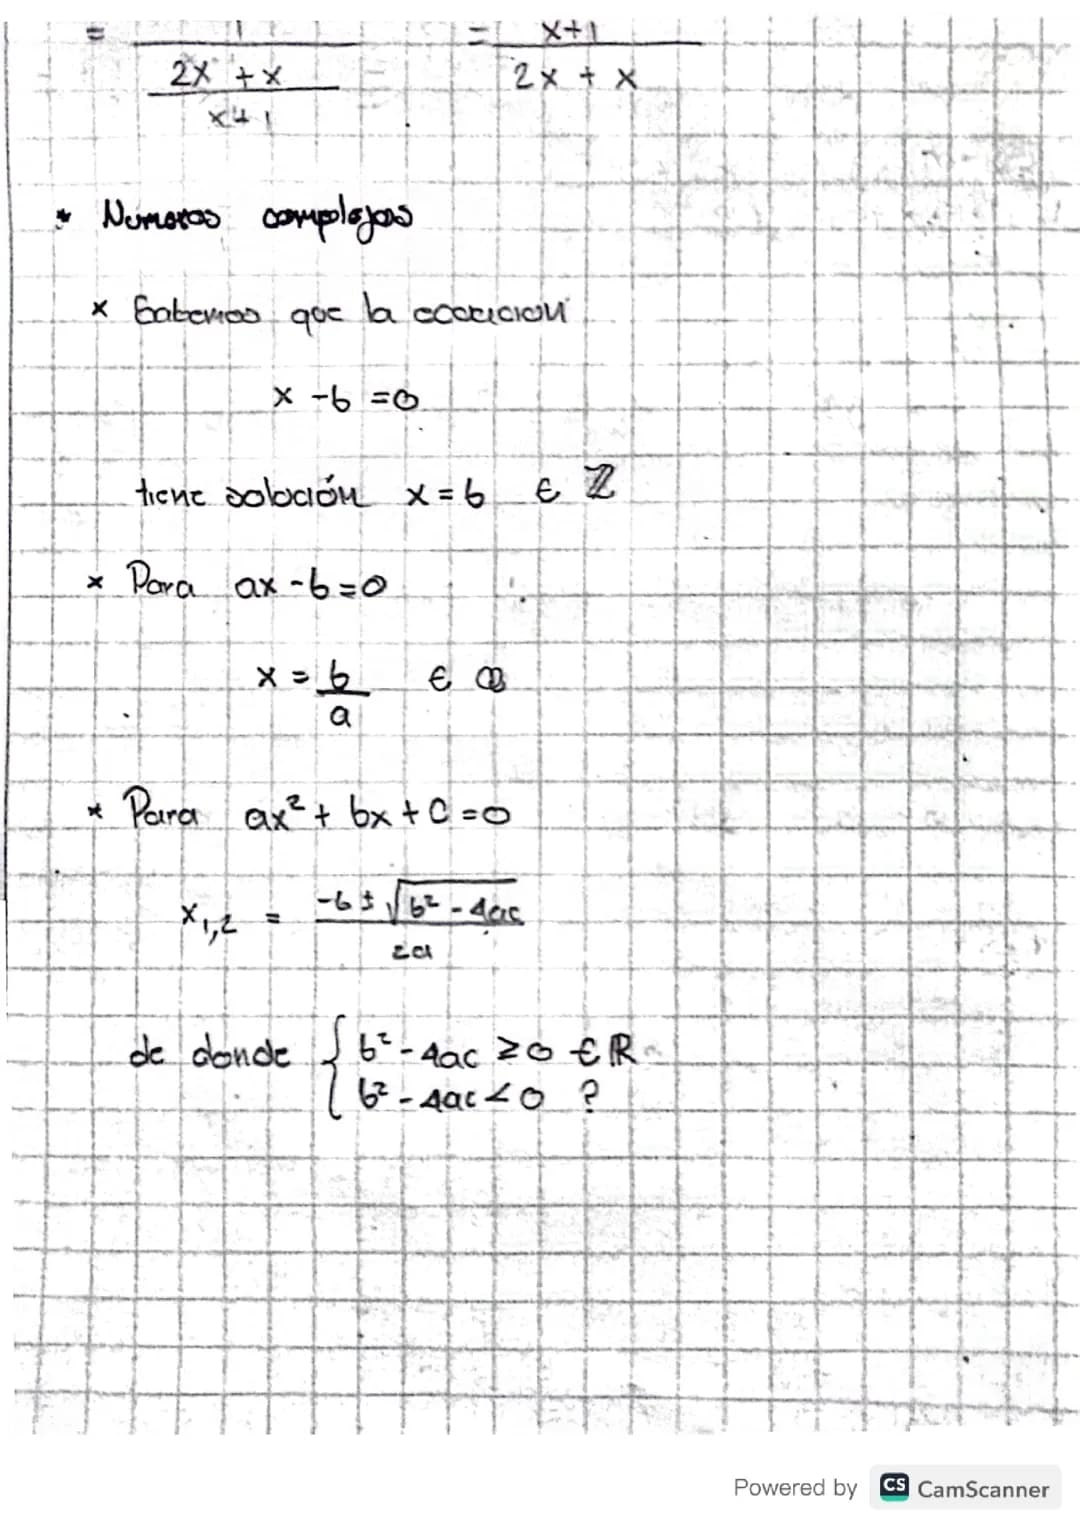 = 1 / (2x + x / x+1) = x+1 / 2x + x
* Numeros complejos
x Sabemos que la ecuacion
x - b = 0
tiene solución x = b ∈ ℤ
x Para ax - b = 0
x = b/a ∈ ℚ
* Para ax² + bx + C = 0
x₁,₂ = -b ± √(b² - 4ac) / 2a
de donde { b² - 4ac ≥ 0 ∈ ℝ
b² - 4ac < 0 ?
Powered by CS CamScanner